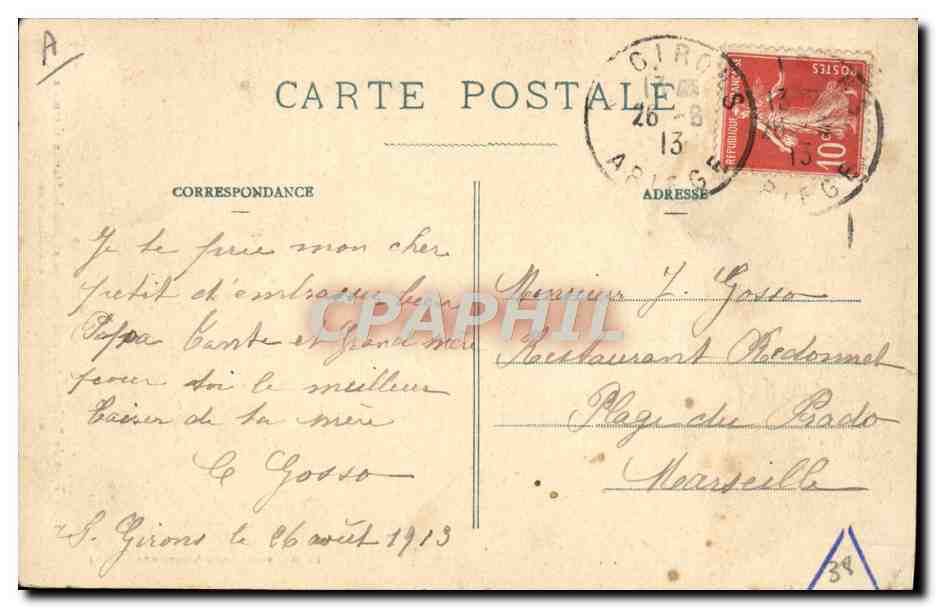 A
CARTE POSTALE
CORRESPONDANCE
Je te prie mon cher
petit d'embrasser bien
Papa Tante et Grand mère
pour toi le meilleur
baiser de ta mère
C Gosso
S. Girons le 26 août 1913
ADRESSE
Monsieur J. Gosso
Restaurant Redonnet
Plage du Prado
Marseille
GIRONS
13
26 -8
13
ARIEGE
REPUBLIQUE FRANÇAISE
POSTES
10
13
ARIEGE
CPAPHIL
38